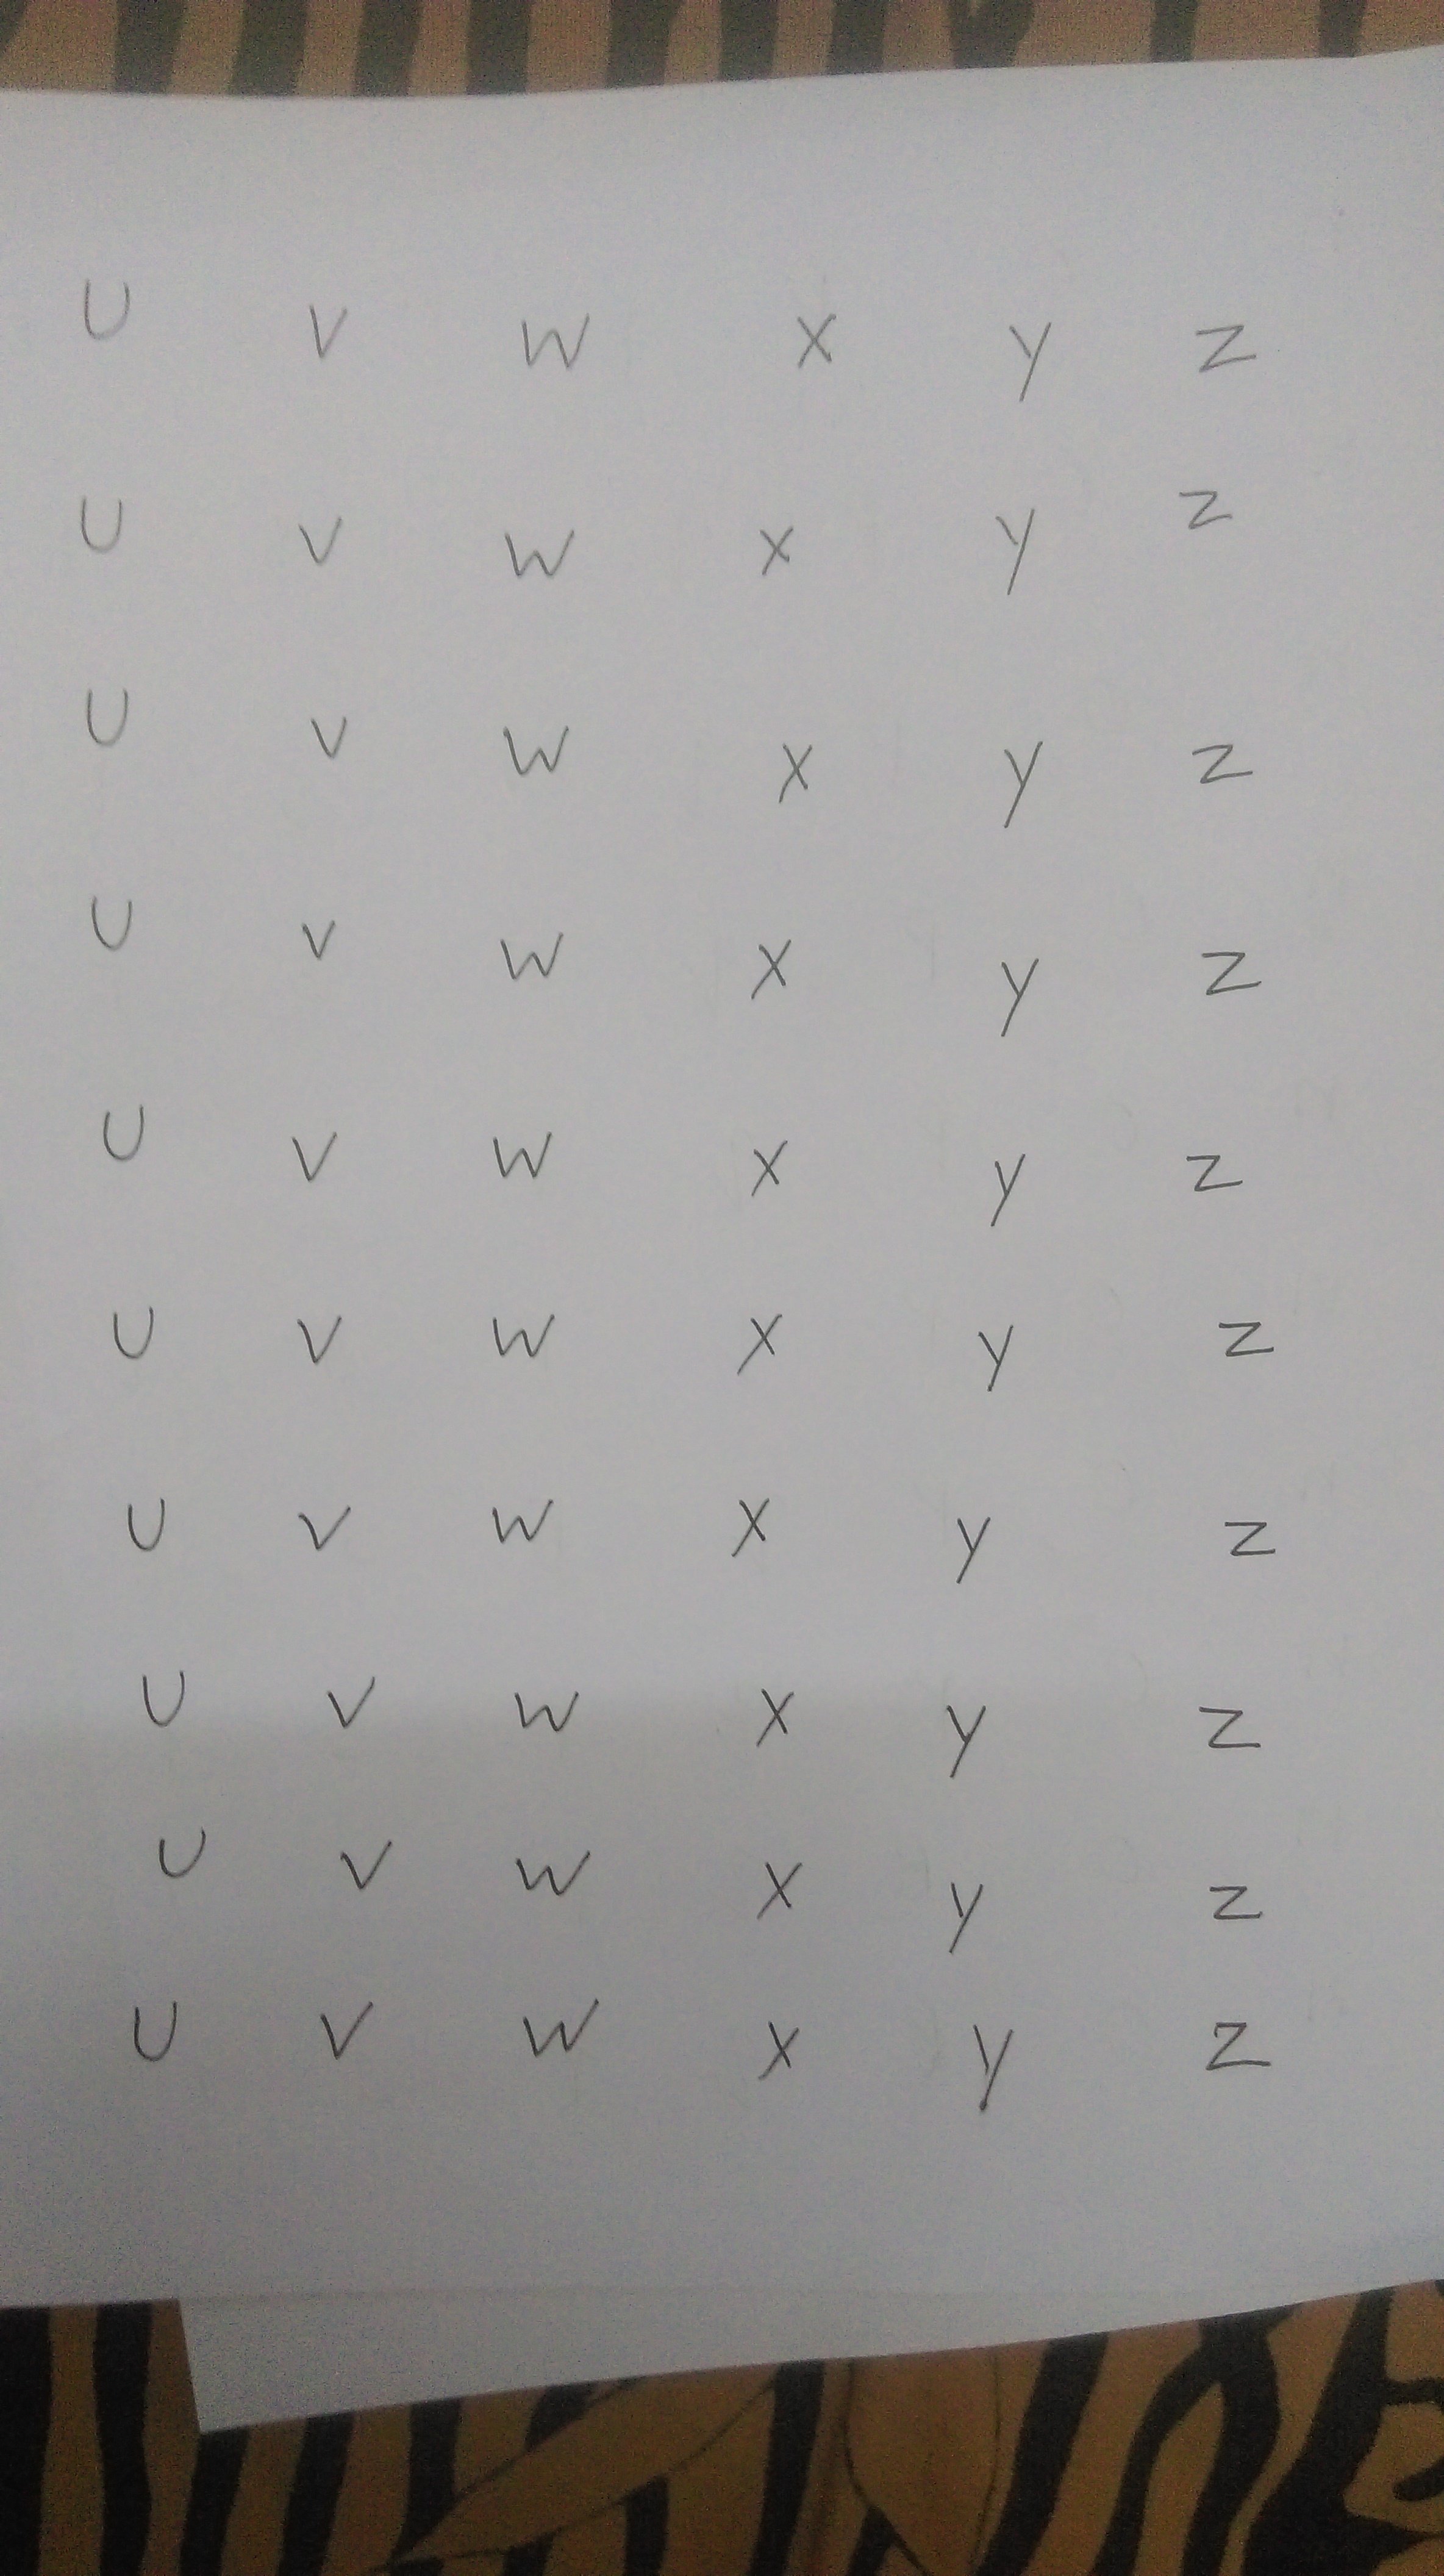 U V W X Y Z
U V W X Y Z
U V W X Y Z
U V W X Y Z
U V W X Y Z
U V W X Y Z
U V W X Y Z
U V W X Y Z
U V W X Y Z
U V W X Y Z